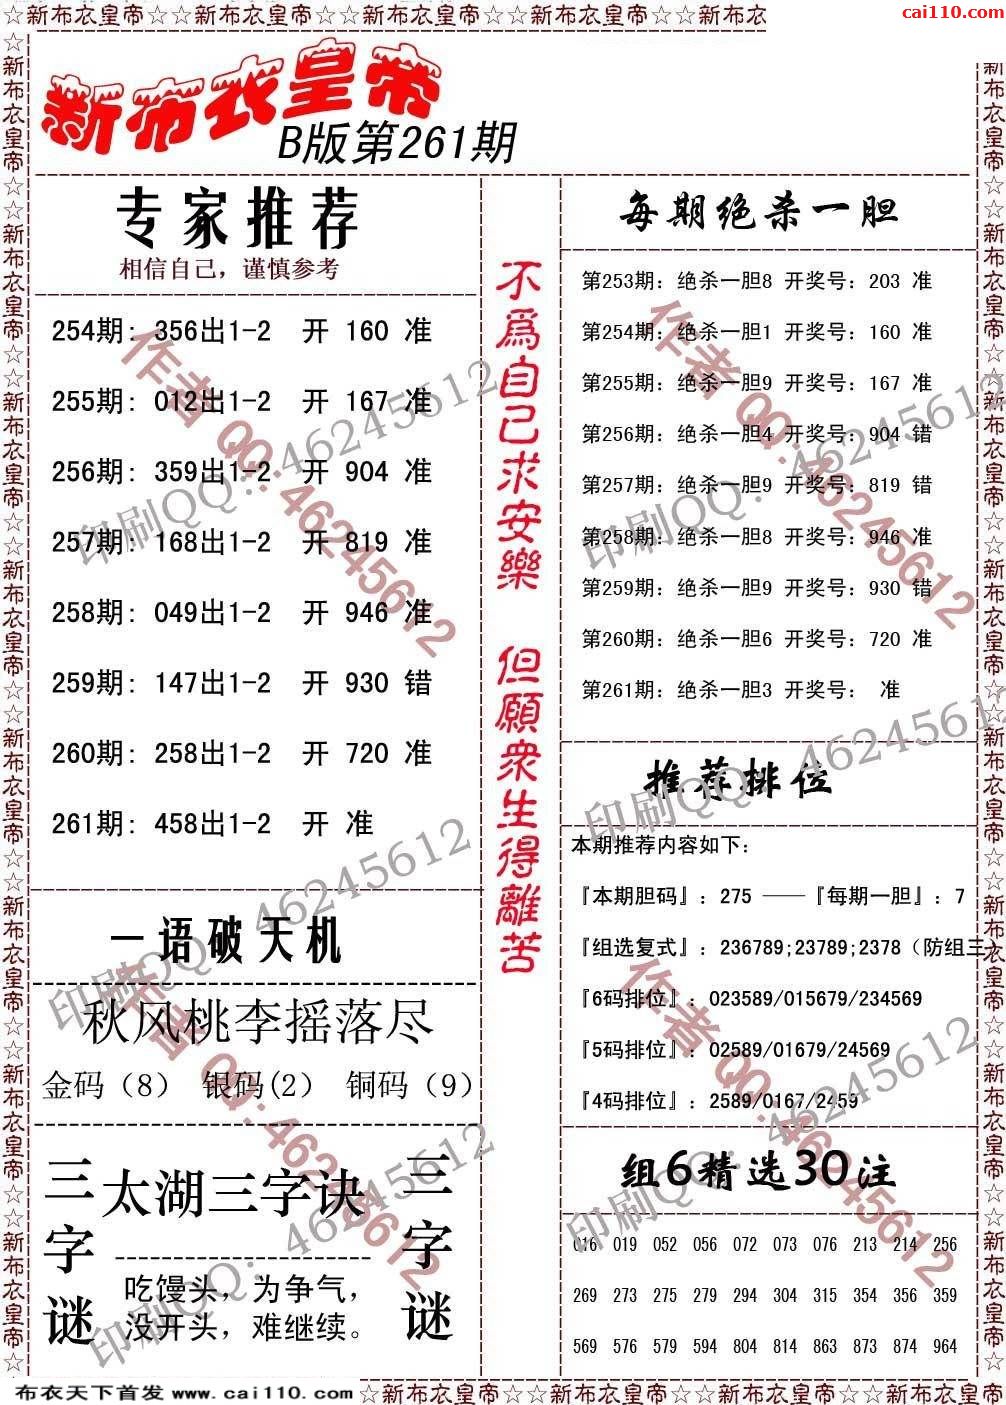 ☆新布衣皇帝☆☆新布衣皇帝☆☆新布衣皇帝☆☆新布衣皇帝☆☆新布衣皇帝☆☆新布衣
cai110.com
新布衣皇帝
B版第261期
专家推荐
相信自己，谨慎参考
254期: 356出1-2 开 160 准
255期: 012出1-2 开 167 准
256期: 359出1-2 开 904 准
257期: 168出1-2 开 819 准
258期: 049出1-2 开 946 准
259期: 147出1-2 开 930 错
260期: 258出1-2 开 720 准
261期: 458出1-2 开 准
一语破天机
秋风桃李摇落尽
金码（8） 银码(2） 铜码（9）
三字谜
太湖三字诀
吃馒头，为争气，
没开头，难继续。
三字谜
不爲自己求安樂 但願衆生得離苦
每期绝杀一胆
第253期: 绝杀一胆8 开奖号: 203 准
第254期: 绝杀一胆1 开奖号: 160 准
第255期: 绝杀一胆9 开奖号: 167 准
第256期: 绝杀一胆4 开奖号: 904 错
第257期: 绝杀一胆9 开奖号: 819 错
第258期: 绝杀一胆8 开奖号: 946 准
第259期: 绝杀一胆9 开奖号: 930 错
第260期: 绝杀一胆6 开奖号: 720 准
第261期: 绝杀一胆3 开奖号: 准
推荐排位
本期推荐内容如下:
『本期胆码』: 275 ——『每期一胆』: 7
『组选复式』: 236789;23789;2378（防组三）
『6码排位』: 023589/015679/234569
『5码排位』: 02589/01679/24569
『4码排位』: 2589/0167/2459
组6精选30注
016 019 052 056 072 073 076 213 214 256
269 273 275 279 294 304 315 354 356 359
569 576 579 594 804 814 863 873 874 964
作者 QQ: 46245612
印刷QQ: 46245612
作者 QQ: 46245612
印刷QQ: 46245612
作者 QQ: 46245612
印刷QQ: 46245612
作者 QQ: 46245612
印刷QQ: 46245612
印刷QQ: 46245612
印刷QQ: 46245612
布衣天下首发 www.cai110.com
☆新布衣皇帝☆☆新布衣皇帝☆☆新布衣皇帝☆☆新布衣皇帝☆